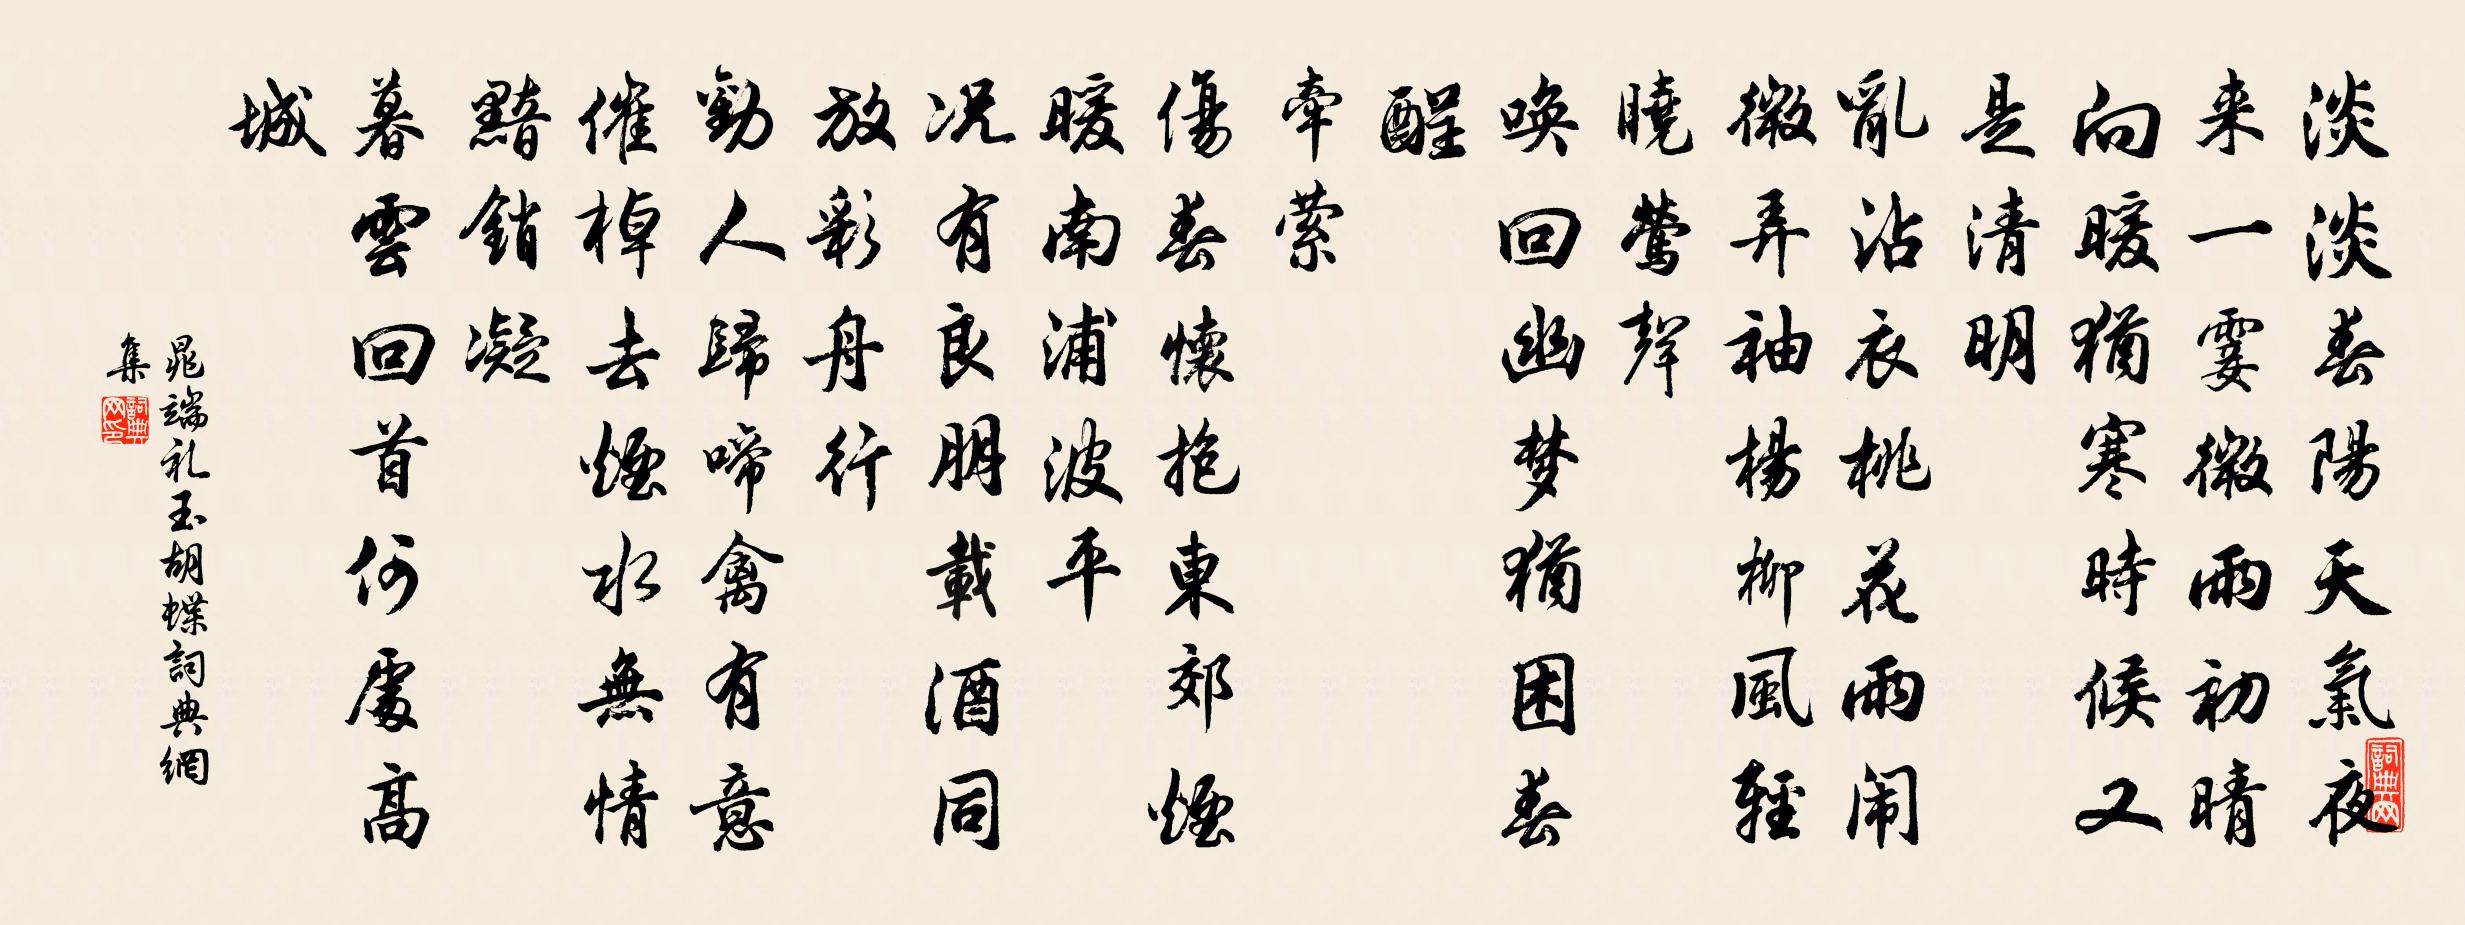 淡淡春陽天氣夜
来一霎微雨初晴
向暖猶寒時候又
是清明
亂沾衣桃花雨闹
微弄袖楊柳風輕
曉鶯聲
唤回幽梦猶困春
酲
牵萦
傷春懷抱東郊煙
暖南浦波平
况有良朋載酒同
放彩舟行
勸人歸啼禽有意
催棹去煙水無情
黯銷凝
暮雲回首何處高
城
晁端礼玉胡蝶詞典網
集
詞典网
詞典网印